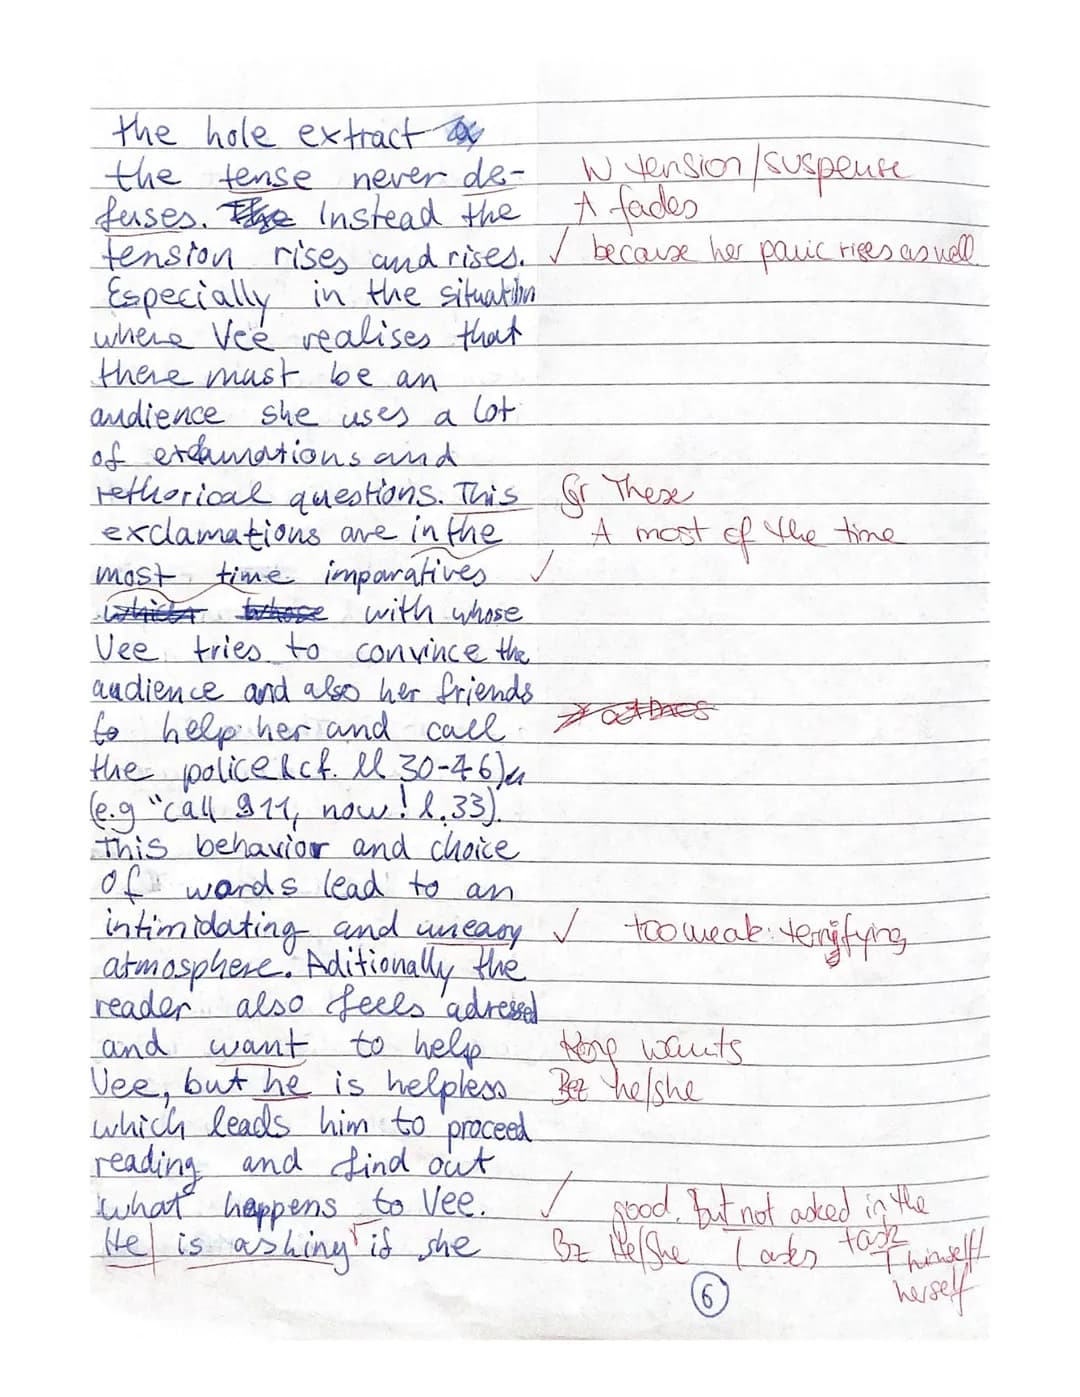 the hole extract
the tense never de- W tension/suspense
fuses. The Instead the A fades
tension rises and rises. √ because her panic rises as well
Especially in the situation
where Vee realises that
there must be an
audience she uses a lot
of exclamations and
rethorical questions. This Gr These
exclamations are in the A most of the time
most time imparatives √
which whose with whose
Vee tries to convince the
audience and also her friends
to help her and call
the police (cf. ll 30-46)
(e.g "call 911, now! l.33).
This behavior and choice
of words lead to an
intimidating and uneasy √ too weak: terrifying
atmosphere. Aditionally the
reader also feels adressed
and want to help Kong wants
Vee, but he is helpless Bez he/she
which leads him to proceed
reading and find out
what happens to Vee. √ good, but not asked in the task
He is asking √ if she Bz He/She T asks T himself/
herself
6